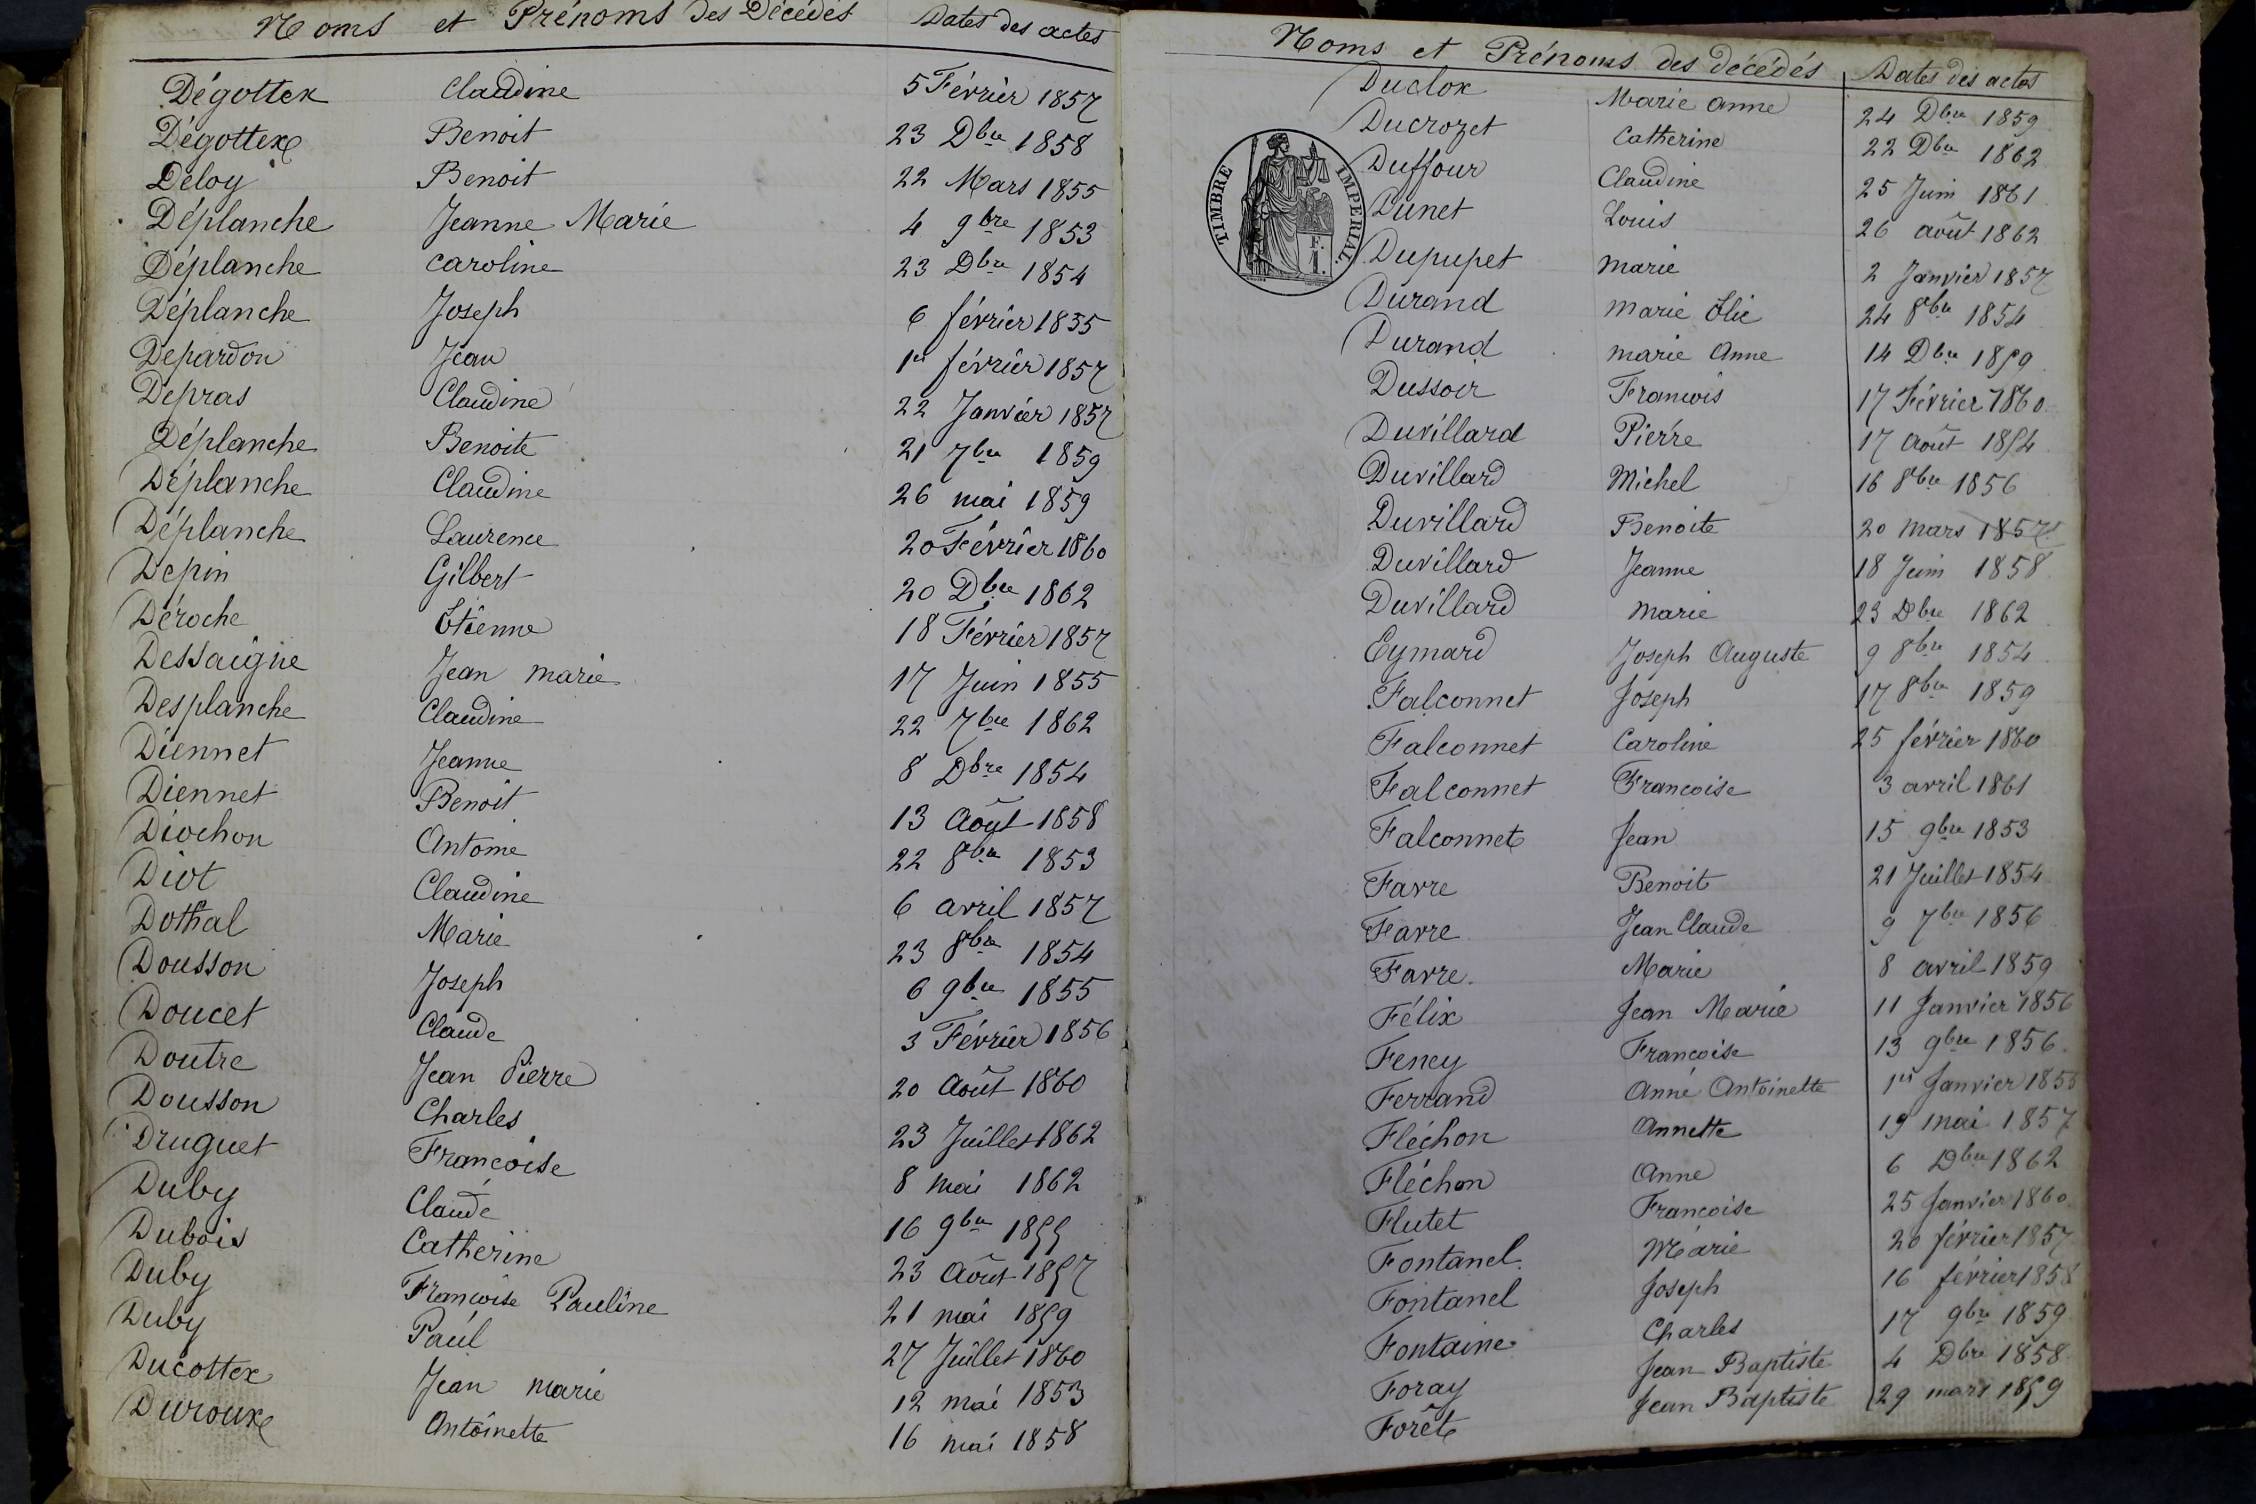 Noms et Prénoms des Décédés Dates des actes
Dégottex Claudine 5 Février 1857
Dégottex Benoit 23 Dbre 1858
Deloy Benoit 22 Mars 1855
Déplanche Jeanne Marie 4 9bre 1853
Déplanche Caroline 23 Dbre 1854
Déplanche Joseph 6 février 1855
Depardon Jean 1er février 1857
Depras Claudine 22 Janvier 1857
Déplanche Benoite 21 7bre 1859
Déplanche Claudine 26 mai 1859
Déplanche Laurence 20 Février 1860
Depin Gilbert 20 Dbre 1862
Déroche Etienne 18 Février 1857
Dessaigne Jean marie 17 Juin 1855
Desplanche Claudine 22 7bre 1862
Diennet Jeanne 8 Dbre 1854
Diennet Benoit 13 Août 1858
Diochon Antoine 22 8bre 1853
Diot Claudine 6 avril 1857
Dothal Marie 23 8bre 1854
Dousson Joseph 6 9bre 1855
Doucet Claude 3 Février 1856
Doutre Jean Pierre 20 Août 1860
Dousson Charles 23 Juillet 1862
Druguet Françoise 8 mai 1862
Duby Claude 16 9bre 1855
Dubois Catherine 23 Août 1857
Duby Françoise Pauline 21 mai 1859
Duby Paul 27 Juillet 1860
Ducottex Jean marie 12 mai 1853
Duroux Antoinette 16 mai 1858
Noms et Prénoms des décédés Dates des actes
Duclox Marie anne 24 Dbre 1859
Ducrozet Catherine 22 Dbre 1862
Duffour Claudine 25 Juin 1861
Dunet Louis 26 août 1862
Dupupet Marie 2 Janvier 1857
Durand Marie Elie 24 8bre 1854
Durand Marie Anne 14 Dbre 1859
Dussoir Francois 17 Février 1860
Duvillard Pierre 17 Août 1854
Duvillard Michel 16 8bre 1856
Duvillard Benoite 20 mars 1857
Duvillard Jeanne 18 Juin 1858
Duvillard Marie 23 Dbre 1862
Eymard Joseph Auguste 9 8bre 1854
Falconnet Joseph 17 8bre 1859
Falconnet Caroline 25 février 1860
Falconnet Francoise 3 avril 1861
Falconnet Jean 15 9bre 1853
Favre Benoit 21 Juillet 1854
Favre Jean Claude 9 7bre 1856
Favre Marie 8 avril 1859
Félix Jean Marie 11 Janvier 1856
Feney Francoise 13 9bre 1856
Ferrand Anne Antoinette 1er Janvier 1855
Fléchon Annette 19 mai 1857
Fléchon Anne 6 Dbre 1862
Flutet Francoise 25 Janvier 1860
Fontanel Marie 20 février 1857
Fontanel Joseph 16 février 1858
Fontaine Charles 17 9bre 1859
Foray Jean Baptiste 4 Dbre 1858
Forêt Jean Baptiste 29 mars 1859
TIMBRE IMPERIAL
F.
1.